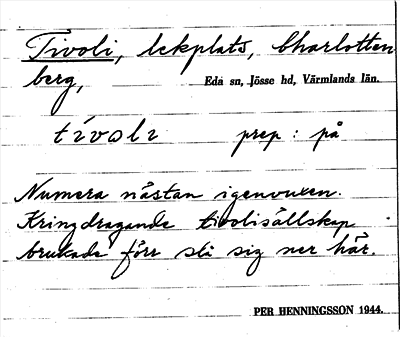 Tivoli, lekplats, Charlotten
berg, Eda sn, Jösse hd, Värmlands län.
tívolı prep: på
Numera nästan igenvuxen.
Kringdragande tivolisällskap
brukade förr slå sig ner här.
PER HENNINGSSON 1944.